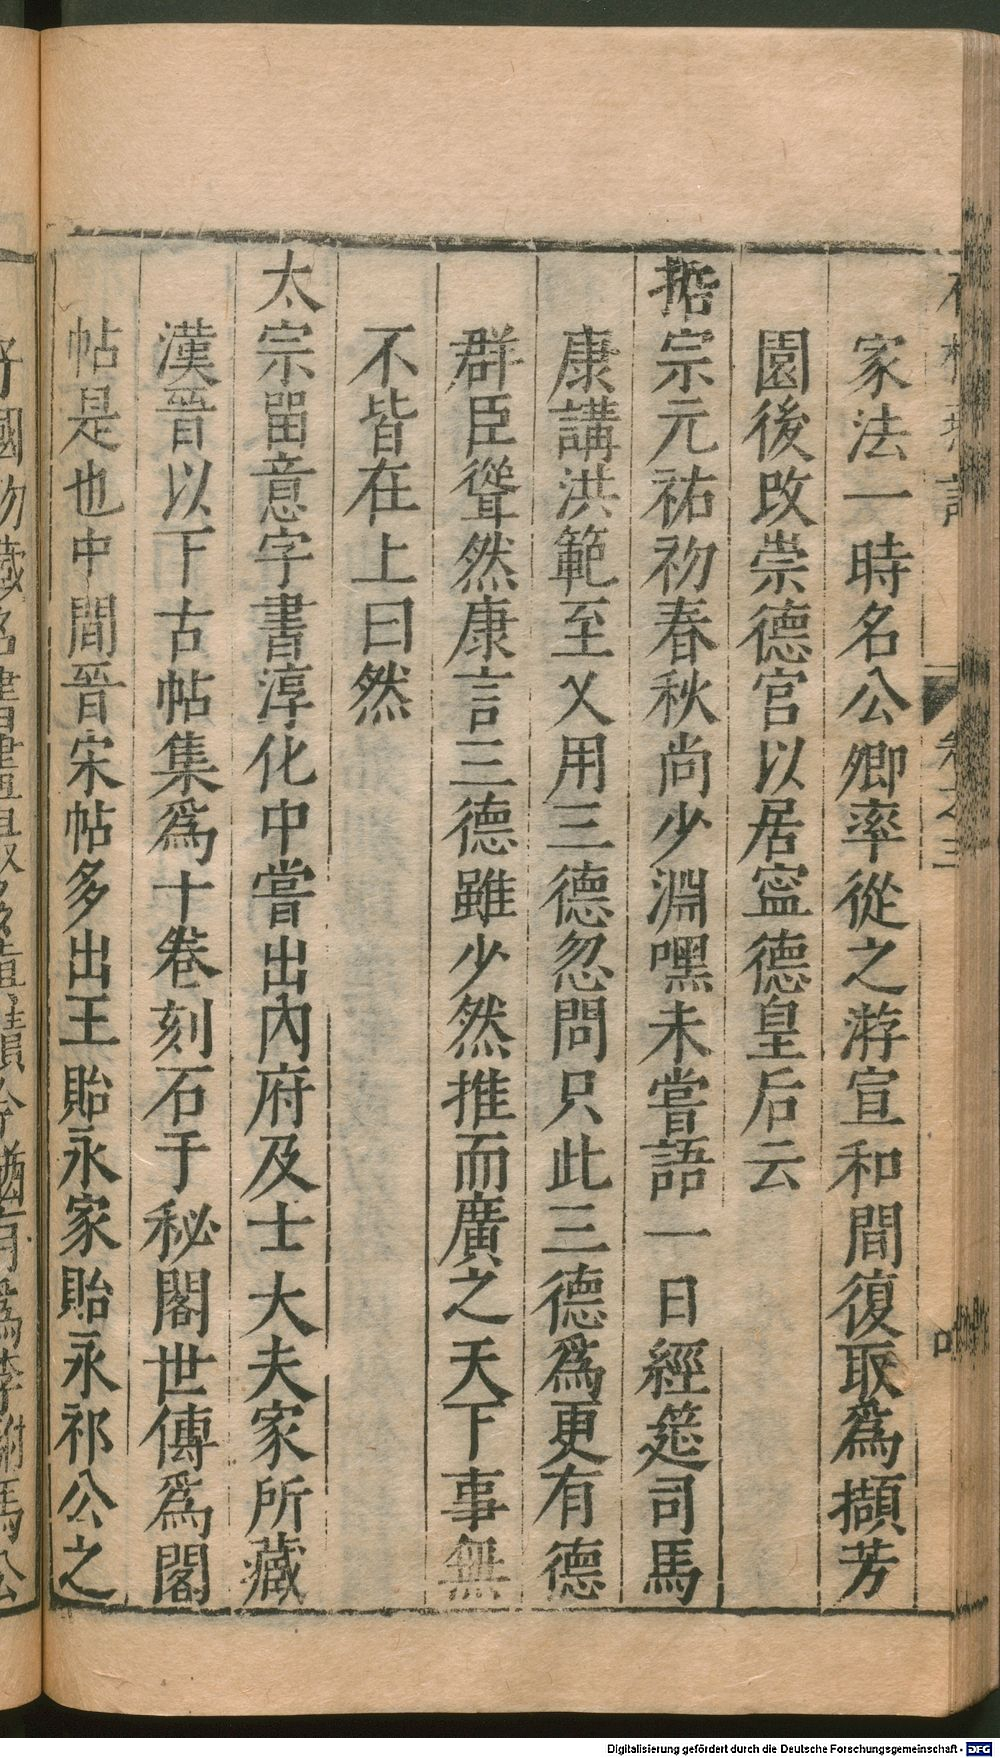 家法一時名公卿率從之游宣和間復取爲擷芳
園後改崇德宮以居寧德皇后云
哲宗元祐初春秋尚少淵嘿未嘗語一日經筵司馬
康講洪範至乂用三德忽問只此三德爲更有德
群臣聳然康言三德雖少然推而廣之天下事無
不皆在上曰然
太宗留意字書淳化中嘗出內府及士大夫家所藏
漢晉以下古帖集爲十卷刻石于秘閣世傳爲閣
帖是也中間晉宋帖多出王貽永家貽永祁公之
Digitalisierung gefördert durch die Deutsche Forschungsgemeinschaft - DFG